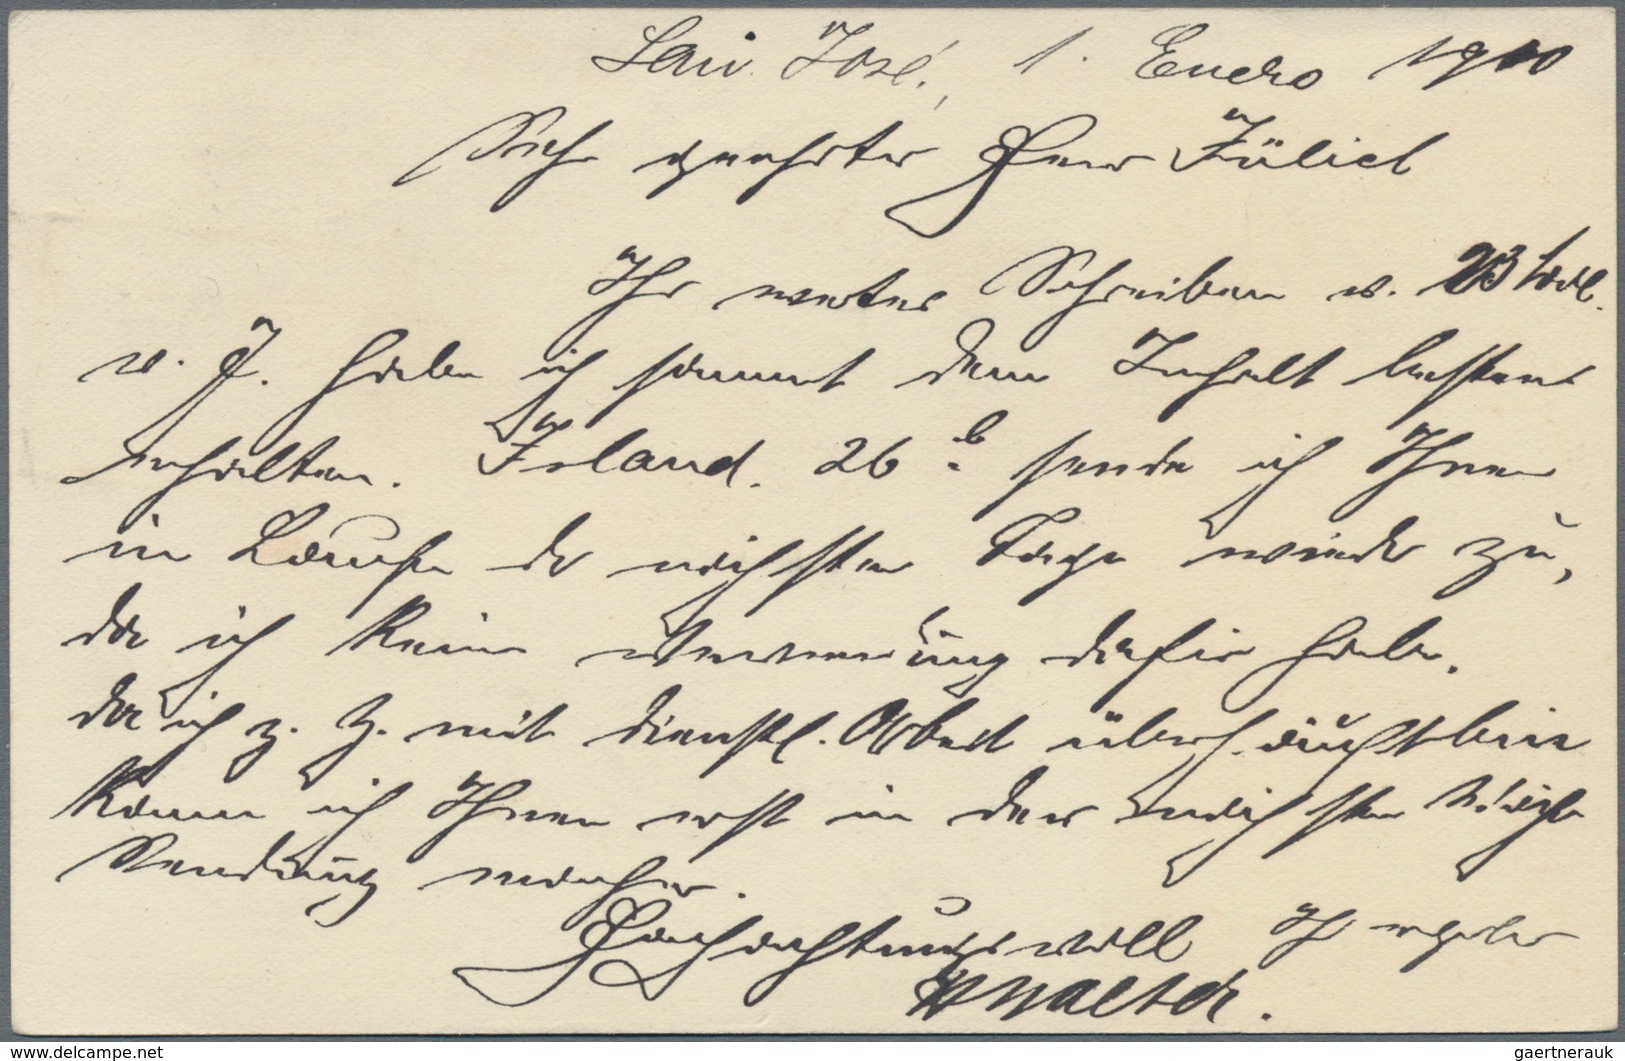 San José, 1. Enero 1910
Sehr geehrter Herr Jülich
Ihr wertes Schreiben v. 23
v. J. habe ich sammt dem Inhalt bestens
erhalten. Island. 26 b. sende ich Ihnen
im Laufe der nächsten Tage wieder zu,
da ich keine Verwendung dafür habe.
Da ich z. Z. mit dienstl. Arbeit überhäuft bin
kann ich Ihnen erst in der nächsten Woche
Sendung machen.
Hochachtungsvoll Ihr ergebener
Walter.
gaertnerauk
www.delcampe.net